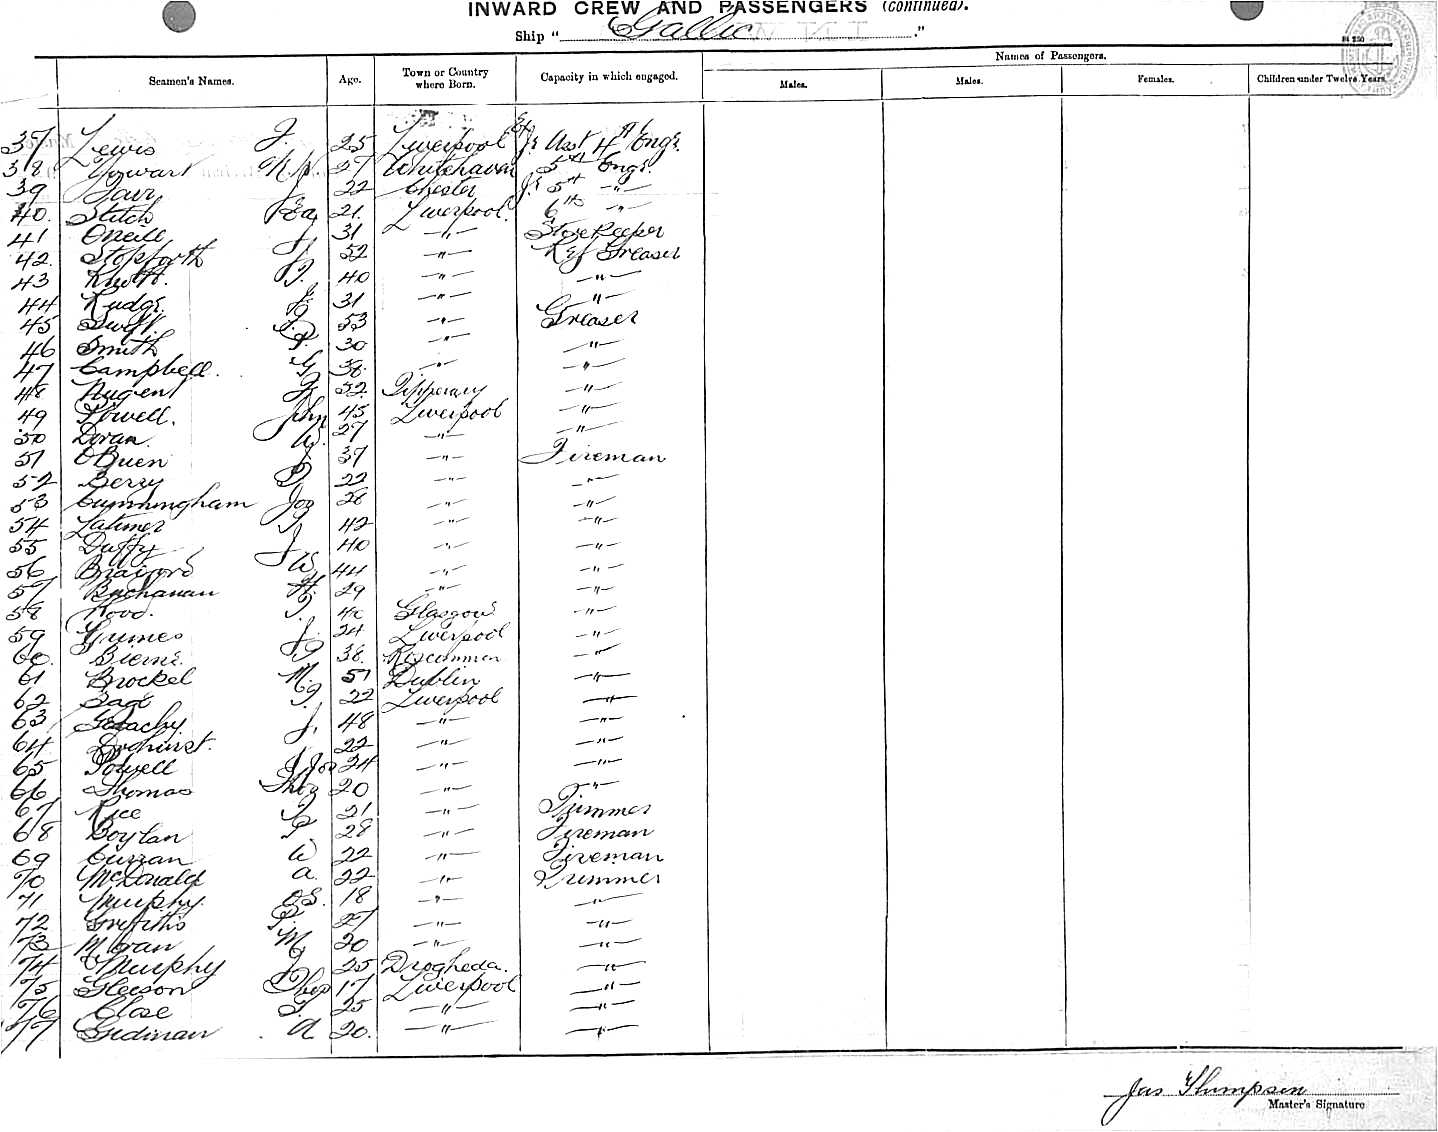 INWARD CREW AND PASSENGERS (continued).
Ship "Gallic"
Seamen's Names. Age. Town or Country where Born. Capacity in which engaged. Names of Passengers.
Males. Males. Females. Children under Twelve Years.
37 Lewis J. 25 Liverpool Ex Jr Asst 4th Engr.
38 27 Whitehaven 5th Engr.
39 J 22 Chester Jr 5th -"-
40. Stitch 21. Liverpool. 6th -"-
41 O'Neill J 31 -"- Storekeeper
42. Stopforth J 52 -"- Ref Greaser
43 40 -"- -"-
44 Rudge J 31 -"- -"-
45 Swift. 53 -"- Greaser
46 Smith P. 30 -"- -"-
47 Campbell. G 38. -"- -"-
48 Nugent 52. Tipperary -"-
49 Powell. John 45 Liverpool -"-
50 Doran. W. 27 -"- -"-
51 J 37 -"- Fireman
52 Berry T 22 -"- -"-
53 Cunningham Jos 28 -"- -"-
54 Latimer T. 42 -"- -"-
55 Duffy J. 40 -"- -"-
56 W 44 -"- -"-
57 Buchanan H. 29 -"- -"-
58 T. Glasgow -"-
59 Grimes J. 24 Liverpool -"-
60. 38. Roscommon -"-
61 Brockel M. 51 Dublin -"-
62 T. 22 Liverpool -"-
63 J. 48 -"- -"-
64 22 -"- -"-
65 Powell Jos 24 -"- -"-
66 Thomas Thos 20 -"- -"-
67 Rice 21 -"- Trimmer
68 Boylan P 28 -"- Fireman
69 Curran W 22 -"- Fireman
70 McDonald a. 22 -"- Trimmer
71 Murphy 18 -"- -"-
72 Griffiths P. 27 -"- -"-
73 Moran M 20 -"- -"-
74 Murphy J 25 Drogheda. -"-
75 Gleeson Thos 17 Liverpool -"-
76 Close T. 25 -"- -"-
77 A 20. -"- -"-
Jas Thompson
Master's Signature